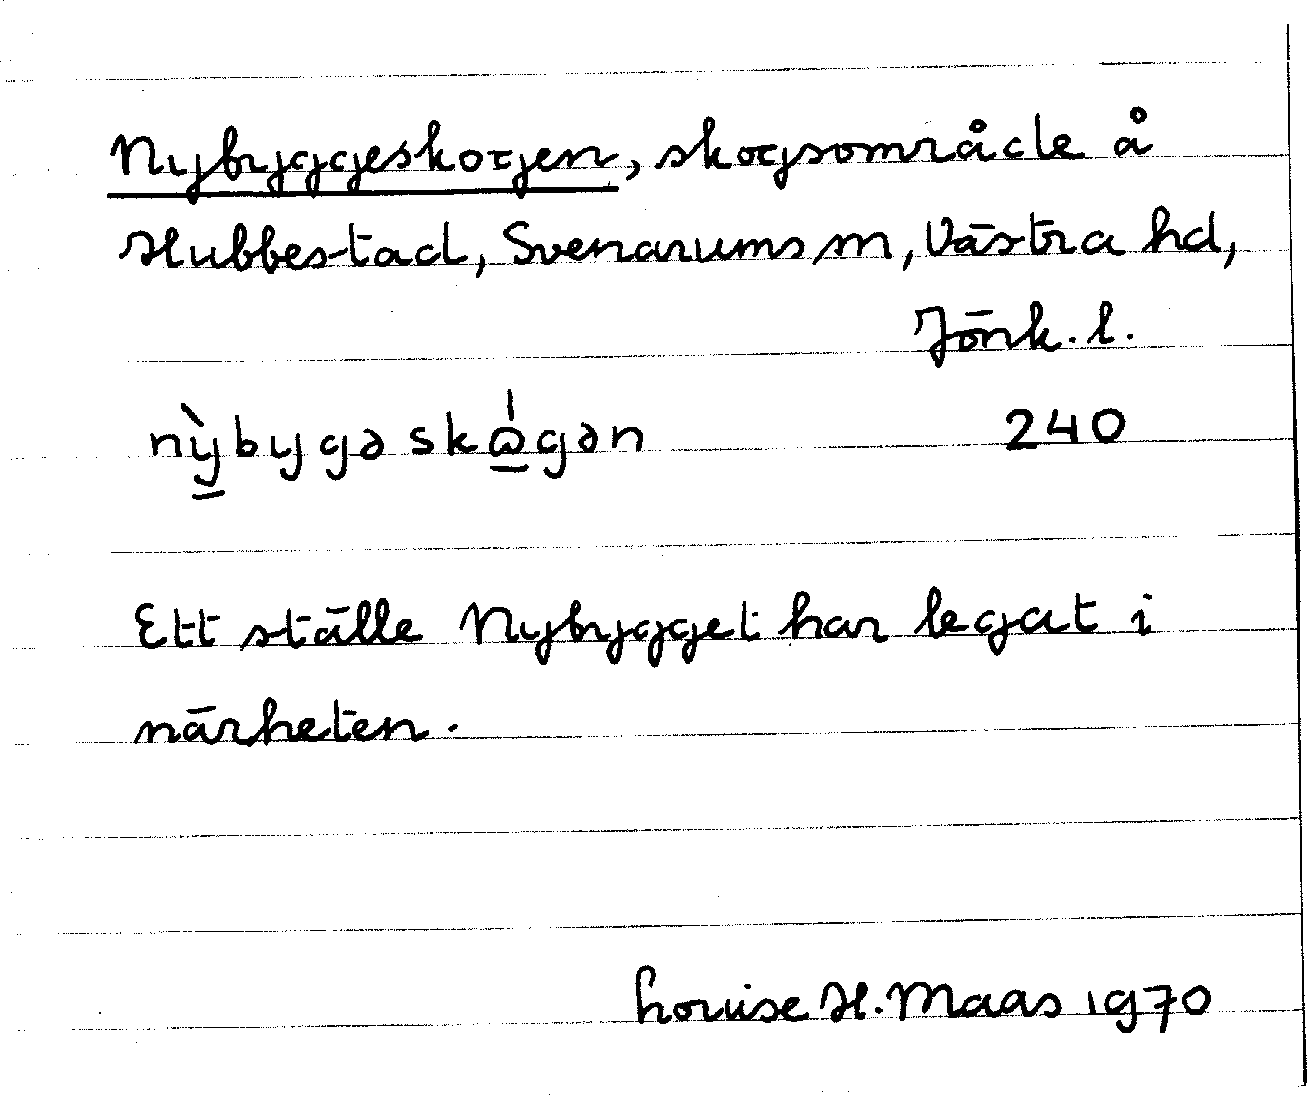 Nybyggeskogen, skogsområde å
Hubbestad, Svenarums sn, Västra hd,
Jönk. l.
nỳ̠bygəskω̠̍gən 240
Ett ställe Nybygget har legat i
närheten.
Louise H. Maas 1970